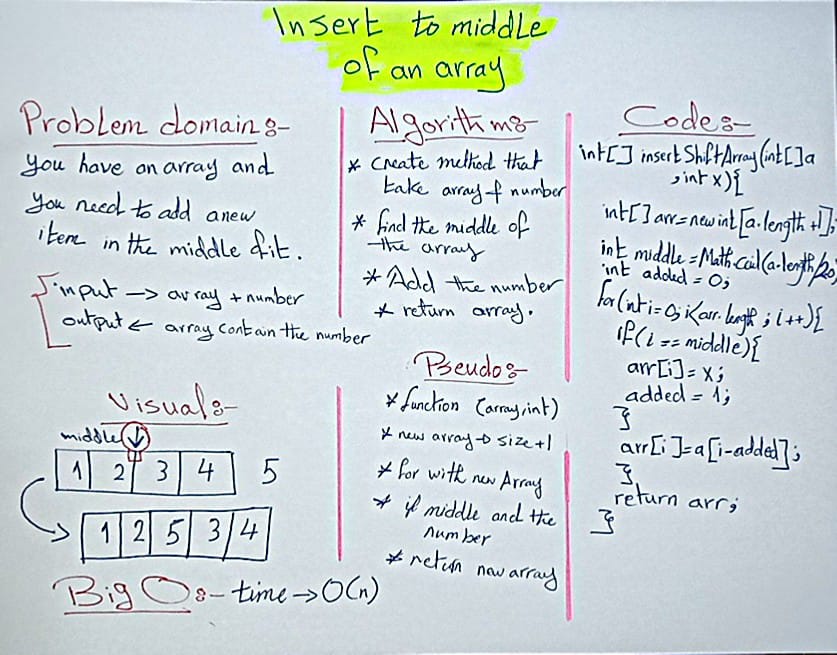 Insert to middle
of an array
Problem domain:-
you have an array and
you need to add anew
item in the middle of it.
input → array + number
output ← array contain the number
Visual:-
middle ↓
1 2 3 4 5
1 2 5 3 4
Big O:- time → O(n)
Algorithm:-
* create method that
take array & number
* find the middle of
the array
* Add the number
* return array.
Pseudo:-
* function (array, int)
* new array → size+1
* for with new Array
* if middle and the
number
* return new array
Code:-
int[] insertShiftArray(int[]a
,int x){
int[] arr=new int[a.length+1];
int middle=Math.ceil(a.length/2.0;
int added=0;
for(int i=0;i<arr.length;i++){
if(i==middle){
arr[i]=x;
added=1;
}
arr[i]=a[i-added];
}
return arr;
}